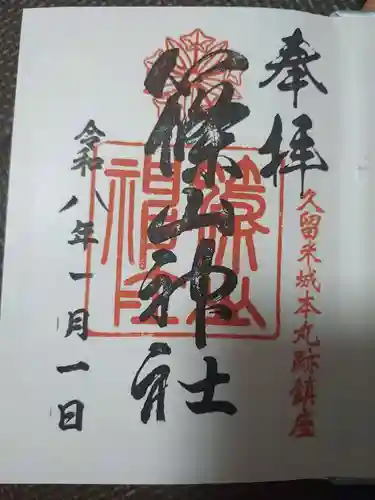 奉拝
久留米城本丸跡鎮座
篠山神社
篠山神社
令和八年一月一日